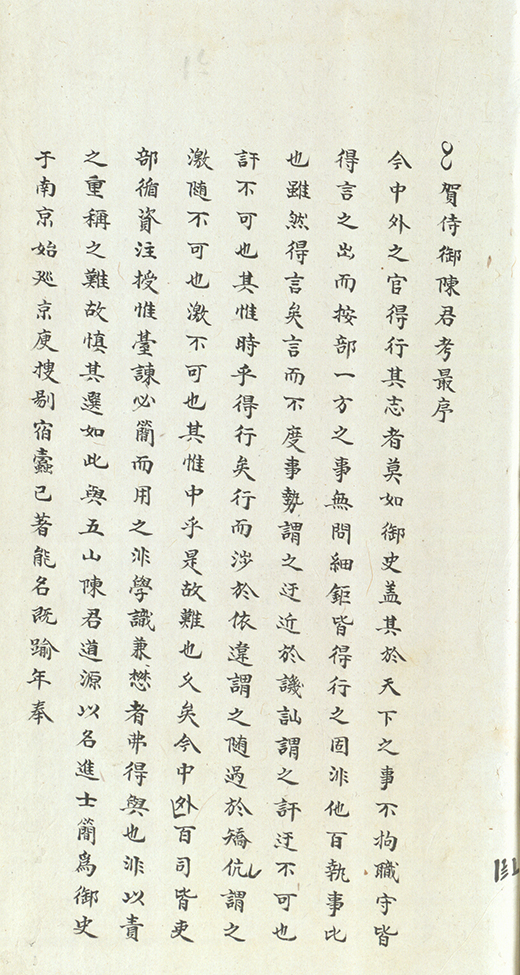 賀侍御陳君考最序
今中外之官得行其志者莫如御史盖其於天下之事不拘職守皆
得言之出而按部一方之事無問細鉅皆得行之固非他百執事比
也雖然得言矣言而不度事勢謂之迂近於譏訕謂之訐迂不可也
訐不可也其惟時乎得行矣行而涉於依違謂之随過於矯伉謂之
激随不可也激不可也其惟中乎是故難也久矣今中外百司皆吏
部循資注授惟臺諫必簡而用之非學識兼懋者弗得與也非以責
之重稱之難故慎其選如此與五山陳君道源以名進士簡爲御史
于南京始廵京庾搜剔宿蠹已著能名既踰年奉